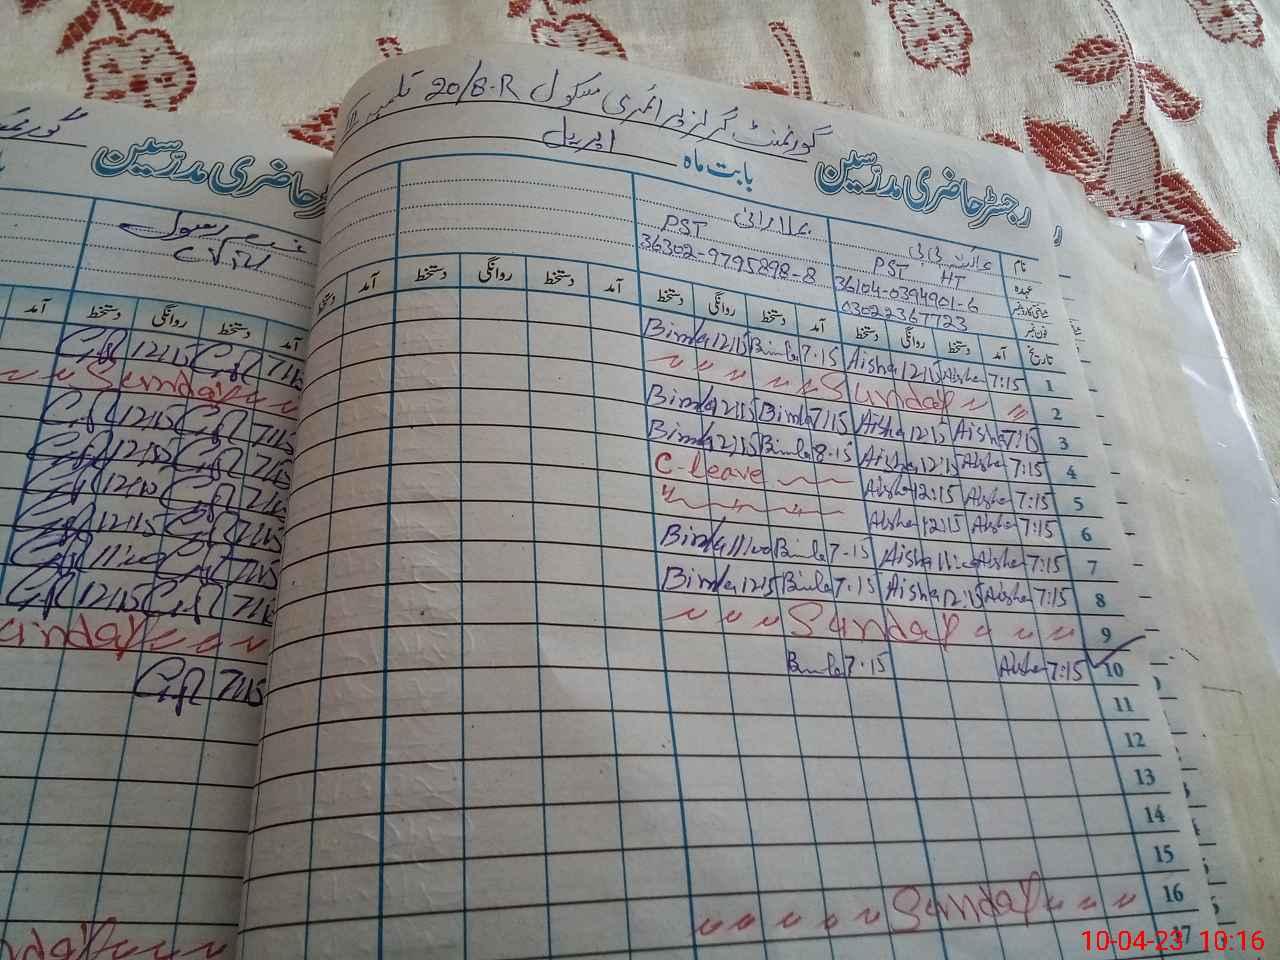 گورنمنٹ گرلز پرائمری سکول 20/8-R
رجسٹر حاضری مدرسین بابت ماہ اپریل
نام عائشہ بی بی
عہدہ PST HT PST
36104-0394901-6 36302-9795898-8
فون نمبر 03022367723
تاریخ آمد دستخط روانگی دستخط آمد دستخط روانگی دستخط آمد دستخط روانگی دستخط آمد دستخط
1 7:15 Aisha 12:15 Aisha 7:15 Bimla 12:15 Bimla
2 〃 〃 Sunday 〃 〃 〃 〃 〃
3 7:15 Aisha 12:15 Aisha 7:15 Bimla 12:15 Bimla
4 7:15 Aisha 12:15 Aisha 8:15 Bimla 12:15 Bimla
5 7:15 Aisha 12:15 Aisha C-leave
6 7:15 Aisha 12:15 Aisha 〃 〃 〃
7 7:15 Aisha 11:00 Aisha 7-15 Bimla 11:00 Bimla
8 7:15 Aisha 12:15 Aisha 7.15 Bimla 12:15 Bimla
9 〃 〃 〃 Sunday 〃 〃 〃
10 7:15 Aisha 7.15 Bimla
11
12
13
14
15
16 〃 〃 〃 Sunday 〃 〃 〃 〃 〃
17
حاضری مدرسین
غلام رسول
آمد دستخط روانگی دستخط آمد
7:15 12:15
〃 〃 Sunday 〃 〃
7:15 12:15
7:15 12:15
7:15 12:15
7:15 12:15
7:15 11:00
7:15 12:15
Sunday 〃 〃 〃 〃
7:15
10-04-23 10:16